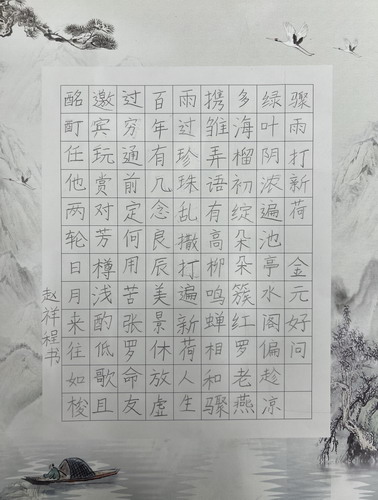 骤雨打新荷 金元好问
绿叶阴浓遍池亭水阁偏趁凉
多海榴初绽朵朵簇红罗老燕
携雏弄语有高柳鸣蝉相和骤
雨过珍珠乱撒打遍新荷人生
百年有几念良辰美景休放虚
过穷通前定何用苦张罗命友
邀宾玩赏对芳樽浅酌低歌且
酩酊任他两轮日月来往如梭
赵祥程书